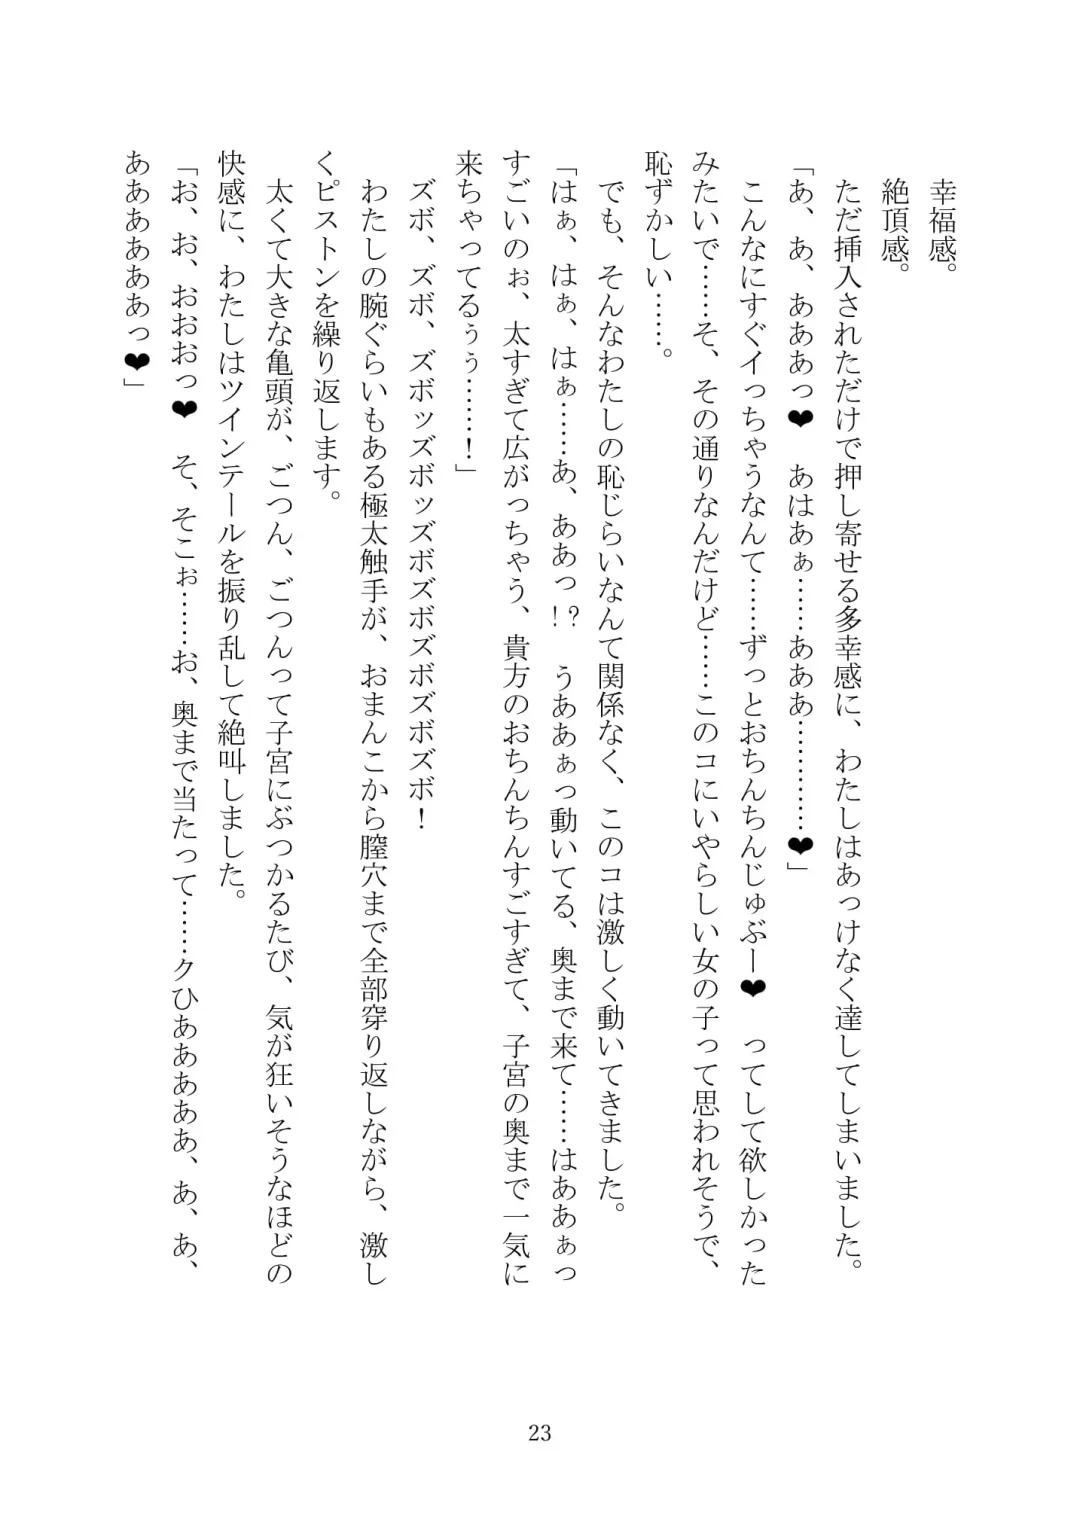 幸福感。
絶頂感。
ただ挿入されただけで押し寄せる多幸感に、わたしはあっけなく達してしまいました。
「あ、あ、あああっ❤　あはあぁ……あああ…………❤」
こんなにすぐイっちゃうなんて……ずっとおちんちんじゅぶー❤　ってして欲しかった
みたいで……そ、その通りなんだけど……このコにいやらしい女の子って思われそうで、
恥ずかしい……。
でも、そんなわたしの恥じらいなんて関係なく、このコは激しく動いてきました。
「はぁ、はぁ、はぁ……あ、ああっ!?　うああぁっ動いてる、奥まで来て……はああぁっ
すごいのぉ、太すぎて広がっちゃう、貴方のおちんちんすごすぎて、子宮の奥まで一気に
来ちゃってるぅぅ……！」
ズボ、ズボ、ズボッズボッズボズボズボズボズボ！
わたしの腕ぐらいもある極太触手が、おまんこから膣穴まで全部穿り返しながら、激し
くピストンを繰り返します。
太くて大きな亀頭が、ごつん、ごつんって子宮にぶつかるたび、気が狂いそうなほどの
快感に、わたしはツインテールを振り乱して絶叫しました。
「お、お、おおおっ❤　そ、そこぉ……お、奥まで当たって……クひあああああ、あ、あ、
ああああああっ❤」
23